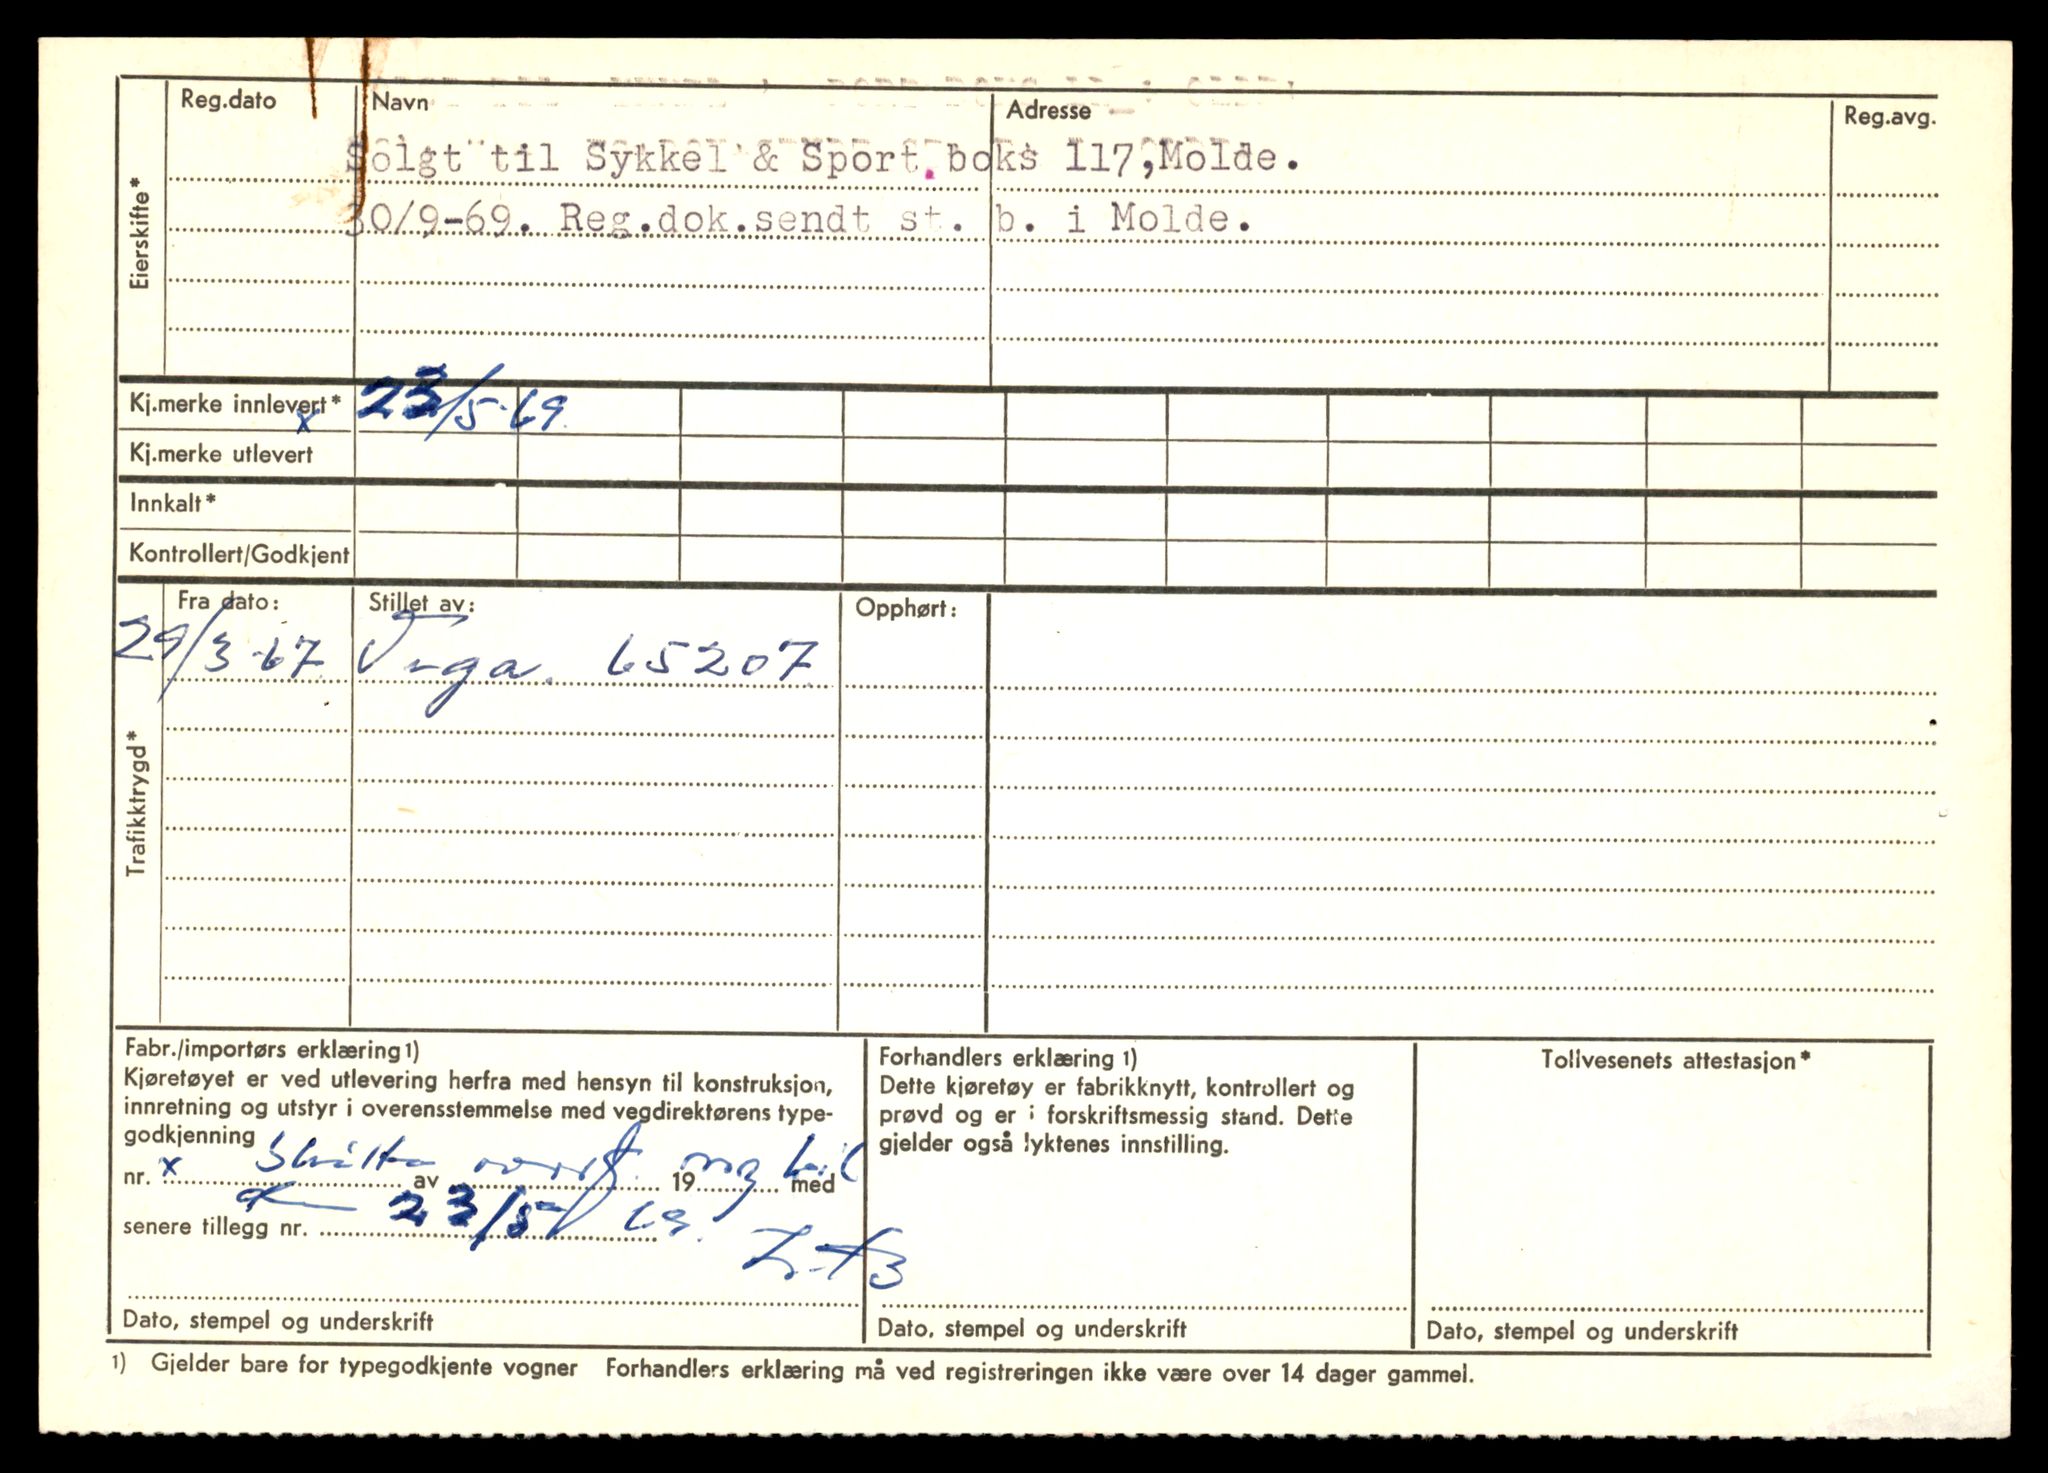 Reg.dato Navn Adresse Reg.avg.
Eierskifte*
Solgt til Sykkel & Sport, boks 117, Molde.
30/9-69. Reg.dok.sendt st. b. i Molde.
Kj.merke innlevert* x 23/5-69.
Kj.merke utlevert
Innkalt*
Kontrollert/Godkjent
Trafikktrygd*
Fra dato: Stillet av: Opphørt:
29/3-67. 65207
Fabr./importørs erklæring 1)
Kjøretøyet er ved utlevering herfra med hensyn til konstruksjon,
innretning og utstyr i overensstemmelse med vegdirektørens type-
godkjenning
nr. x Skilter av 19 med
senere tillegg nr. 23/5 69.
Dato, stempel og underskrift
Forhandlers erklæring 1)
Dette kjøretøy er fabrikknytt, kontrollert og
prøvd og er i forskriftsmessig stand. Dette
gjelder også lyktenes innstilling.
Dato, stempel og underskrift
Tollvesenets attestasjon*
Dato, stempel og underskrift
1) Gjelder bare for typegodkjente vogner Forhandlers erklæring må ved registreringen ikke være over 14 dager gammel.